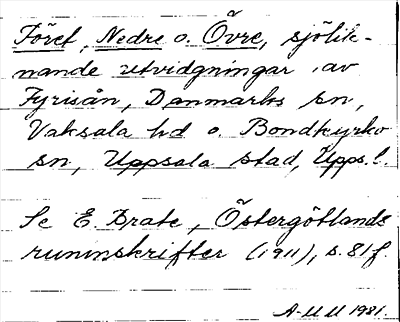 Föret, Nedre o. Övre, sjölik-
nande utvidgningar av
Fyrisån, Danmarks sn,
Vaksala hd o. Bondkyrko
sn, Uppsala stad, Upps. l.
Se E. Brate, Östergötlands
runinskrifter (1911), s. 81f.
A-M M 1981.